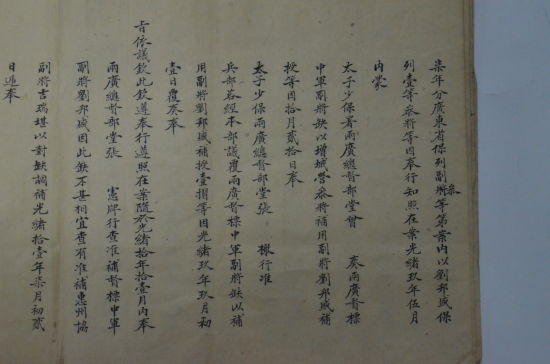 柒年分廣東省保列副將等第叁案內以劉邦盛保
列壹等叅將等因奉行知照在案光緒玖年伍月
內蒙
太子少保署兩廣總督部堂曾 奏兩廣督標
中軍副將缺以增城營叅將補用副將劉邦盛補
授等因拾月貳拾日奉
太子少保兩廣總督部堂張 檄行准
兵部咨經本部議覆兩廣督標中軍副將缺以補
用副將劉邦盛補授壹摺等因光緒玖年玖月初
壹日覆奏奉
旨依議欽此欽遵奉行遵照在案隨於光緒拾年拾壹月內奉
兩廣總督部堂張 憲牌行查准補督標中軍
副將劉邦盛因此缺不甚相宜查有准補惠州協
副將吉瑞堪以對缺調補光緒拾壹年柒月初貳
日遞奉